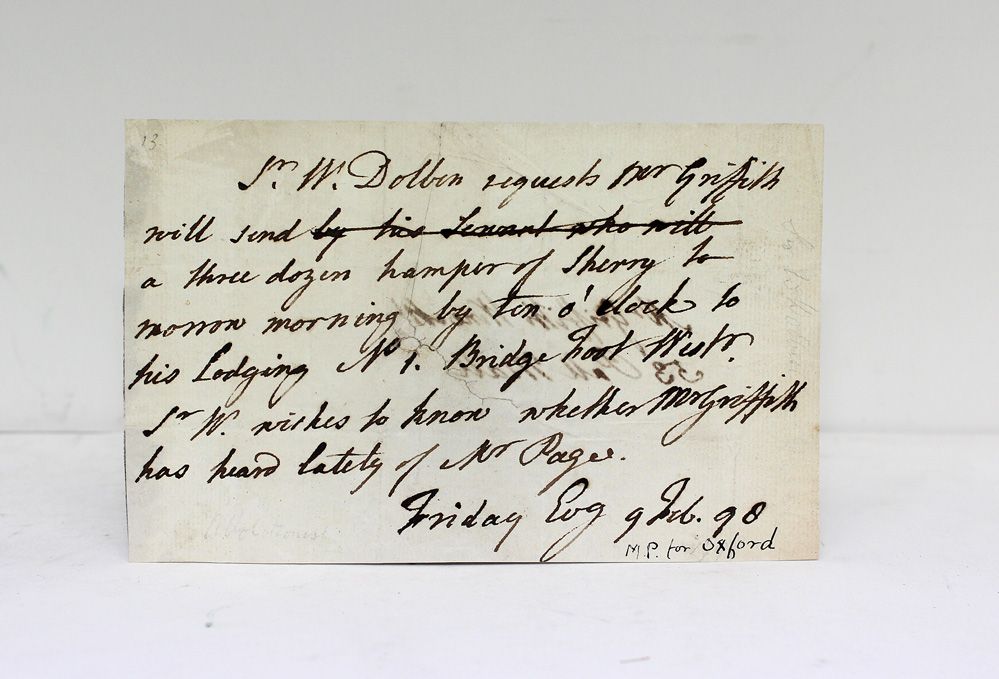 13
Sr. W. Dolben requests Mr Griffith
will send by his Servant who will
a three dozen hamper of Sherry to
morrow morning by ten o'clock to
his Lodging No 1. Bridge Foot Westr.
Sr W. wishes to know whether Mr Griffith
has heard lately of Mr Page.
Friday Evg 9 Feb. 98
M.P. for Oxford